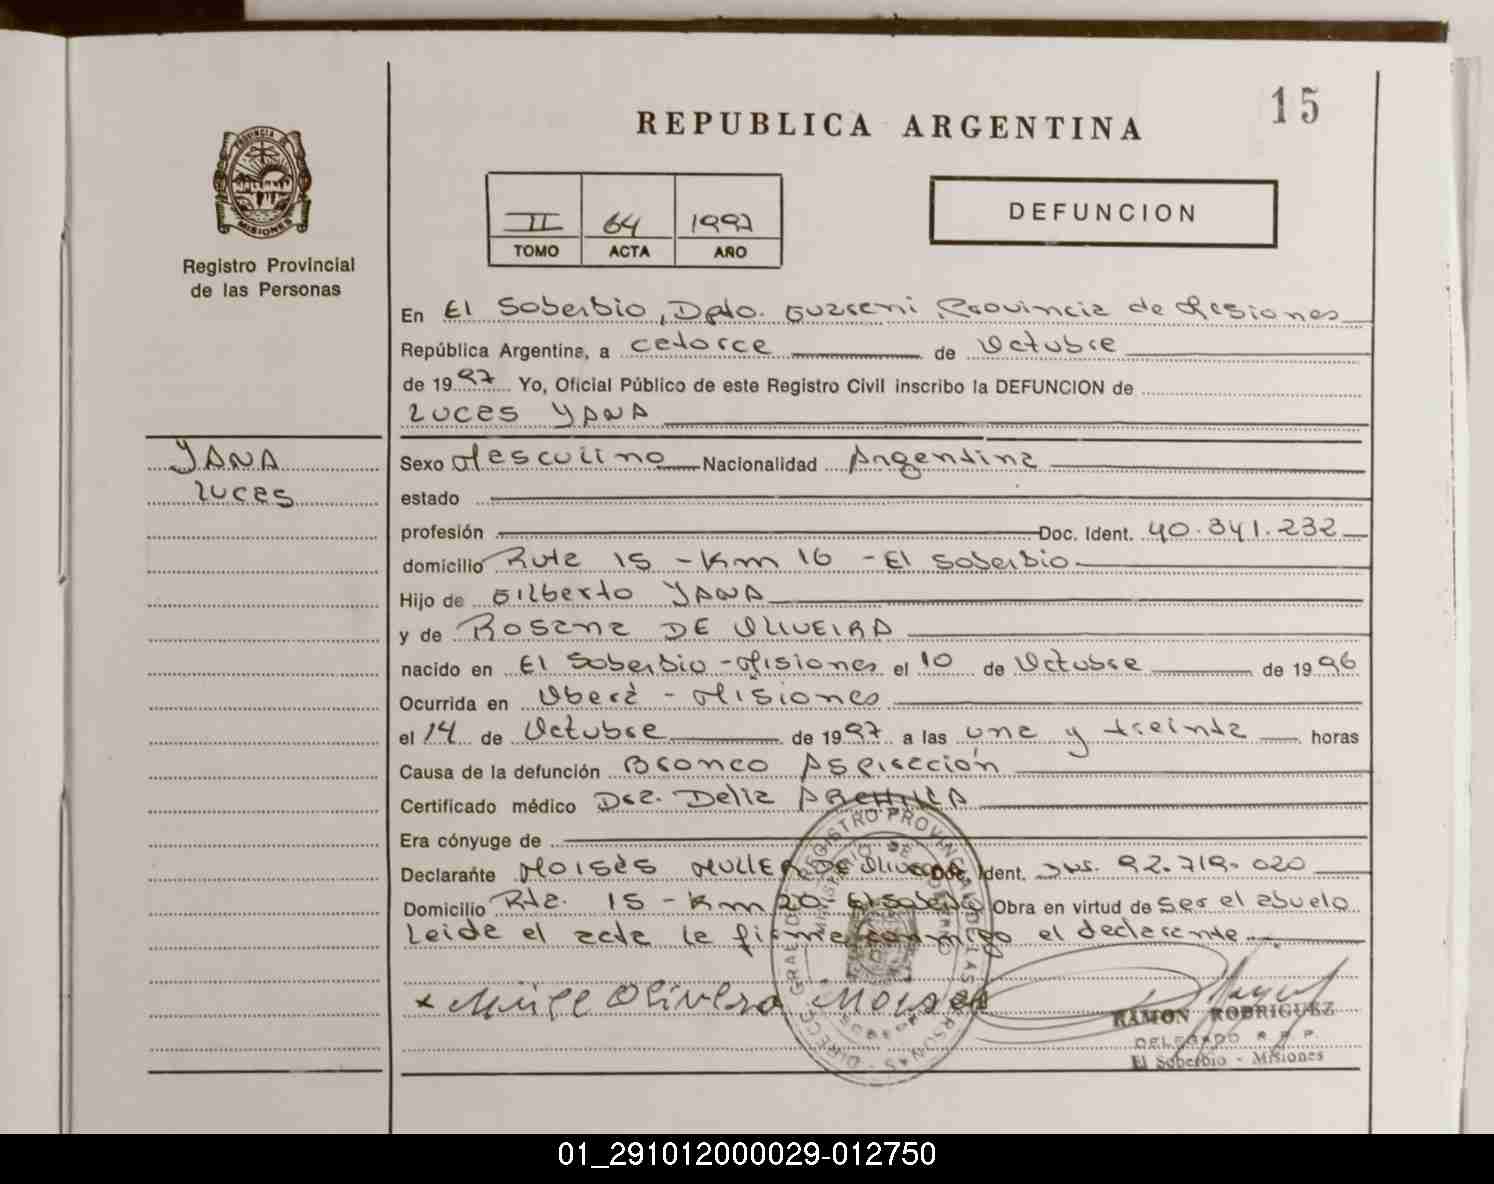 15
REPUBLICA ARGENTINA
PROVINCIA
MISIONES
Registro Provincial
de las Personas
II 64 1997
TOMO ACTA AÑO
DEFUNCION
En El Soberbio, Dpto. Guarani Provincia de Misiones
República Argentina, a catorce de Octubre
de 1997 Yo, Oficial Público de este Registro Civil inscribo la DEFUNCION de
Lucas YANA
YANA
Lucas
Sexo Masculino Nacionalidad Argentina
estado
profesión Doc. Ident. 40.341.232
domicilio Ruta 15 - Km 16 - El Soberbio
Hijo de Gilberto YANA
y de Rosana DE OLIVEIRA
nacido en El Soberbio - Misiones el 10 de Octubre de 1996
Ocurrida en Oberá - Misiones
el 14 de Octubre de 1997 a las una y treinta horas
Causa de la defunción Bronco Aspiración
Certificado médico Dra. Delia
Era cónyuge de
Declarante Moisés MULLER DE Oliveira Doc. Ident. 92.719.020
Domicilio Rta. 15 - Km 20, El Soberbio Obra en virtud de ser el abuelo
Leida el acta la firma conmigo el declarante
Olivera
RAMON RODRIGUEZ
DELEGADO R.P.P.
El Soberbio - Misiones
01_291012000029-012750